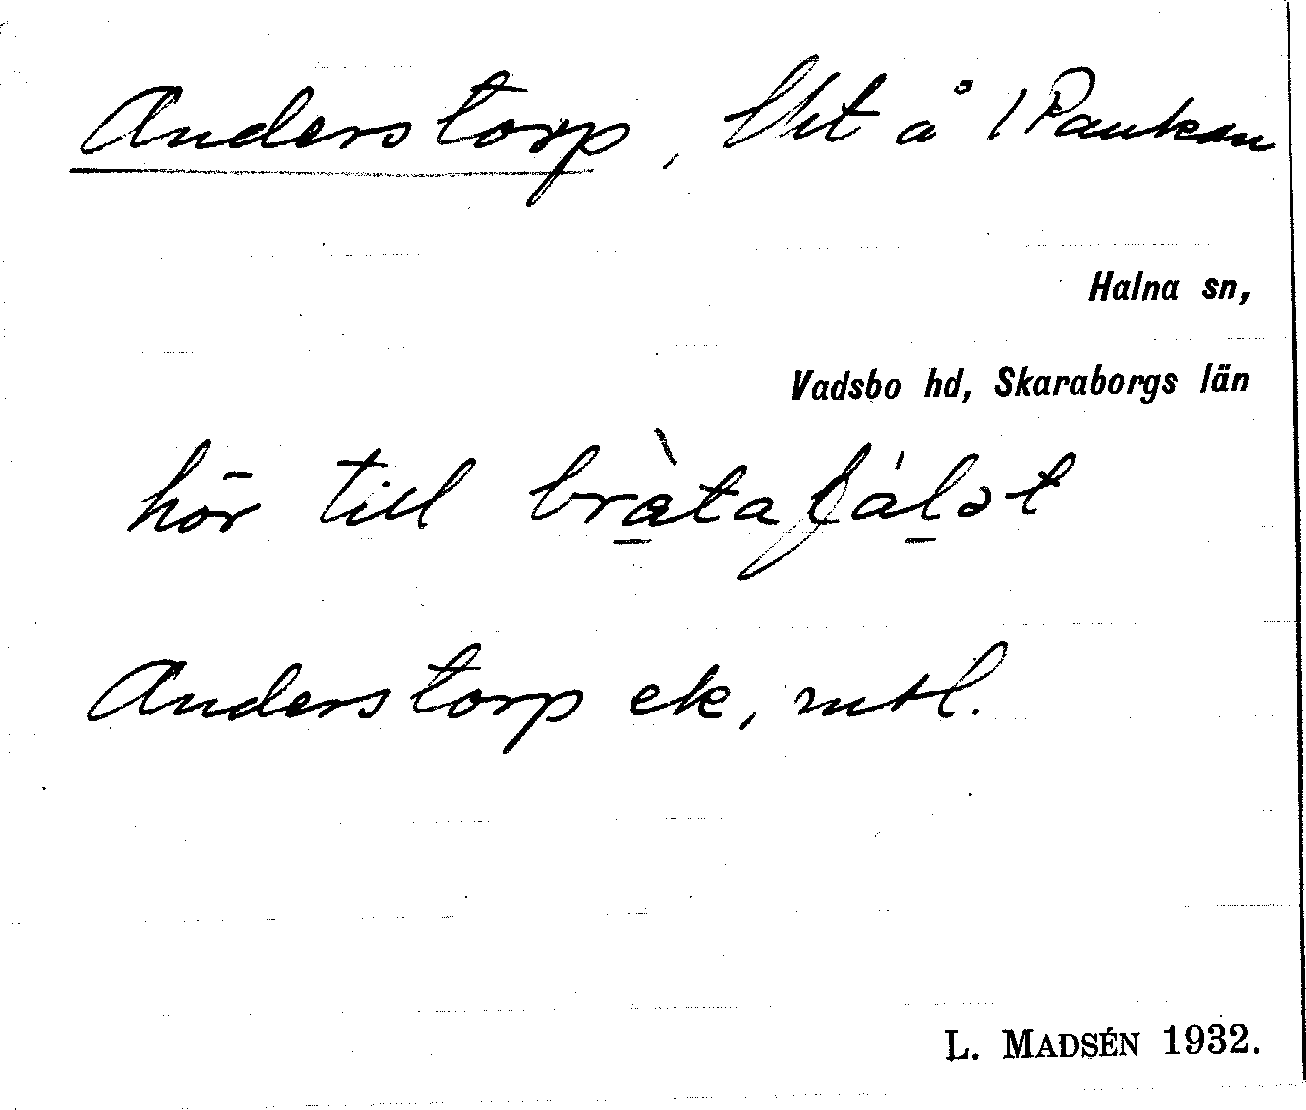 Anderstorp, lht å 1 Rankan
Halna sn,
Vadsbo hd, Skaraborgs län
hör till
Anderstorp ek, mtl.
L. MADSÉN 1932.